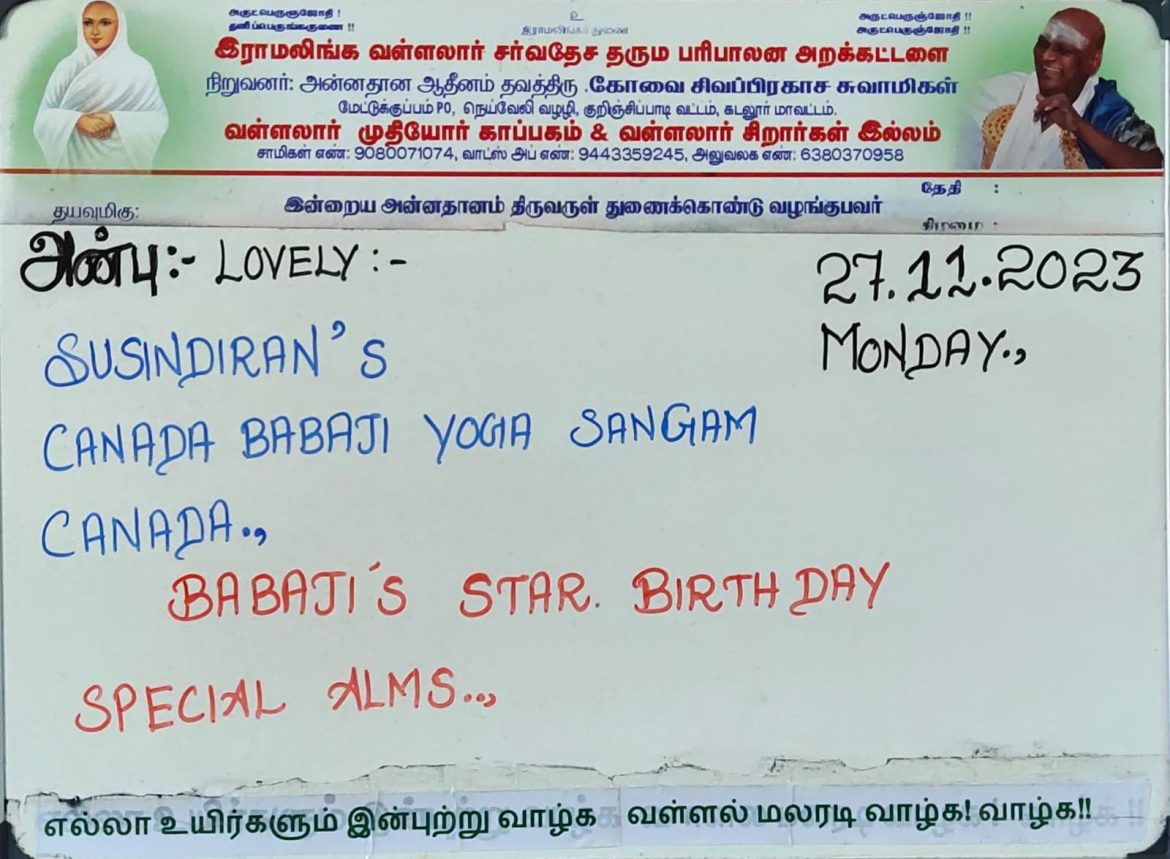 அருட்பெருஞ்ஜோதி !
தனிப்பெருங்கருணை !!
உ
இராமலிங்கர் துணை
அருட்பெருஞ்ஜோதி !!
அருட்பெருஞ்ஜோதி !!
இராமலிங்க வள்ளலார் சர்வதேச தரும பரிபாலன அறக்கட்டளை
நிறுவனர்: அன்னதான ஆதீனம் தவத்திரு .கோவை சிவப்பிரகாச சுவாமிகள்
மேட்டுக்குப்பம் PO, நெய்வேலி வழழி, குறிஞ்சிப்பாடி வட்டம், கடலூர் மாவட்டம்.
வள்ளலார் முதியோர் காப்பகம் & வள்ளலார் சிறார்கள் இல்லம்
சாமிகள் எண்: 9080071074, வாட்ஸ் அப் எண்: 9443359245, அலுவலக எண்: 6380370958
தேதி :
தயவுமிகு: இன்றைய அன்னதானம் திருவருள் துணைக்கொண்டு வழங்குபவர்
கிழமை :
அன்பு:- LOVELY :- 27.11.2023
SUSINDIRAN'S MONDAY.,
CANADA BABAJI YOGA SANGAM
CANADA.,
BABAJI'S STAR. BIRTHDAY
SPECIAL ALMS..,
எல்லா உயிர்களும் இன்புற்று வாழ்க வள்ளல் மலரடி வாழ்க! வாழ்க!!